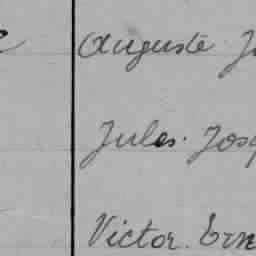 Auguste J
Jules. Jos
Victor. Ern